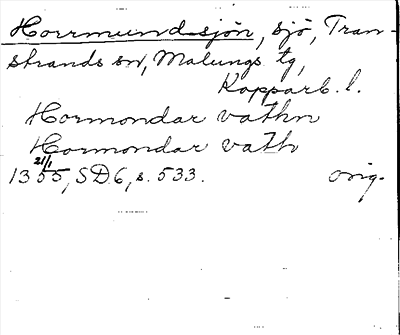 Horrmundsjön, sjö, Tran-
strands sn, Malungs tg,
Kopparb. l.
Hormondar vathn
Hormondar vath
13 21/1 55, SD 6, s. 533. orig.